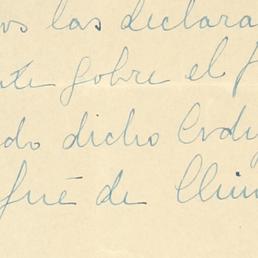 los las declara
te sobre el
do dicho Cody
fué de Clim